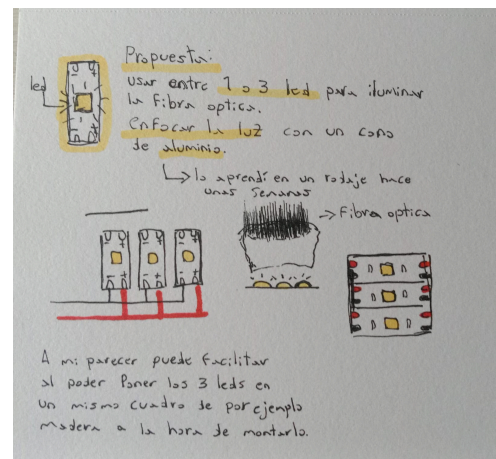 Propuesta:
usar entre 1 o 3 led para iluminar
la fibra optica.
enfocar la luz con un cono
de aluminio.
lo aprendí en un rodaje hace
unas semanas
led
Fibra optica
A mi parecer puede facilitar
al poder poner los 3 leds en
un mismo cuadro de por ejemplo
madera a la hora de montarlo.